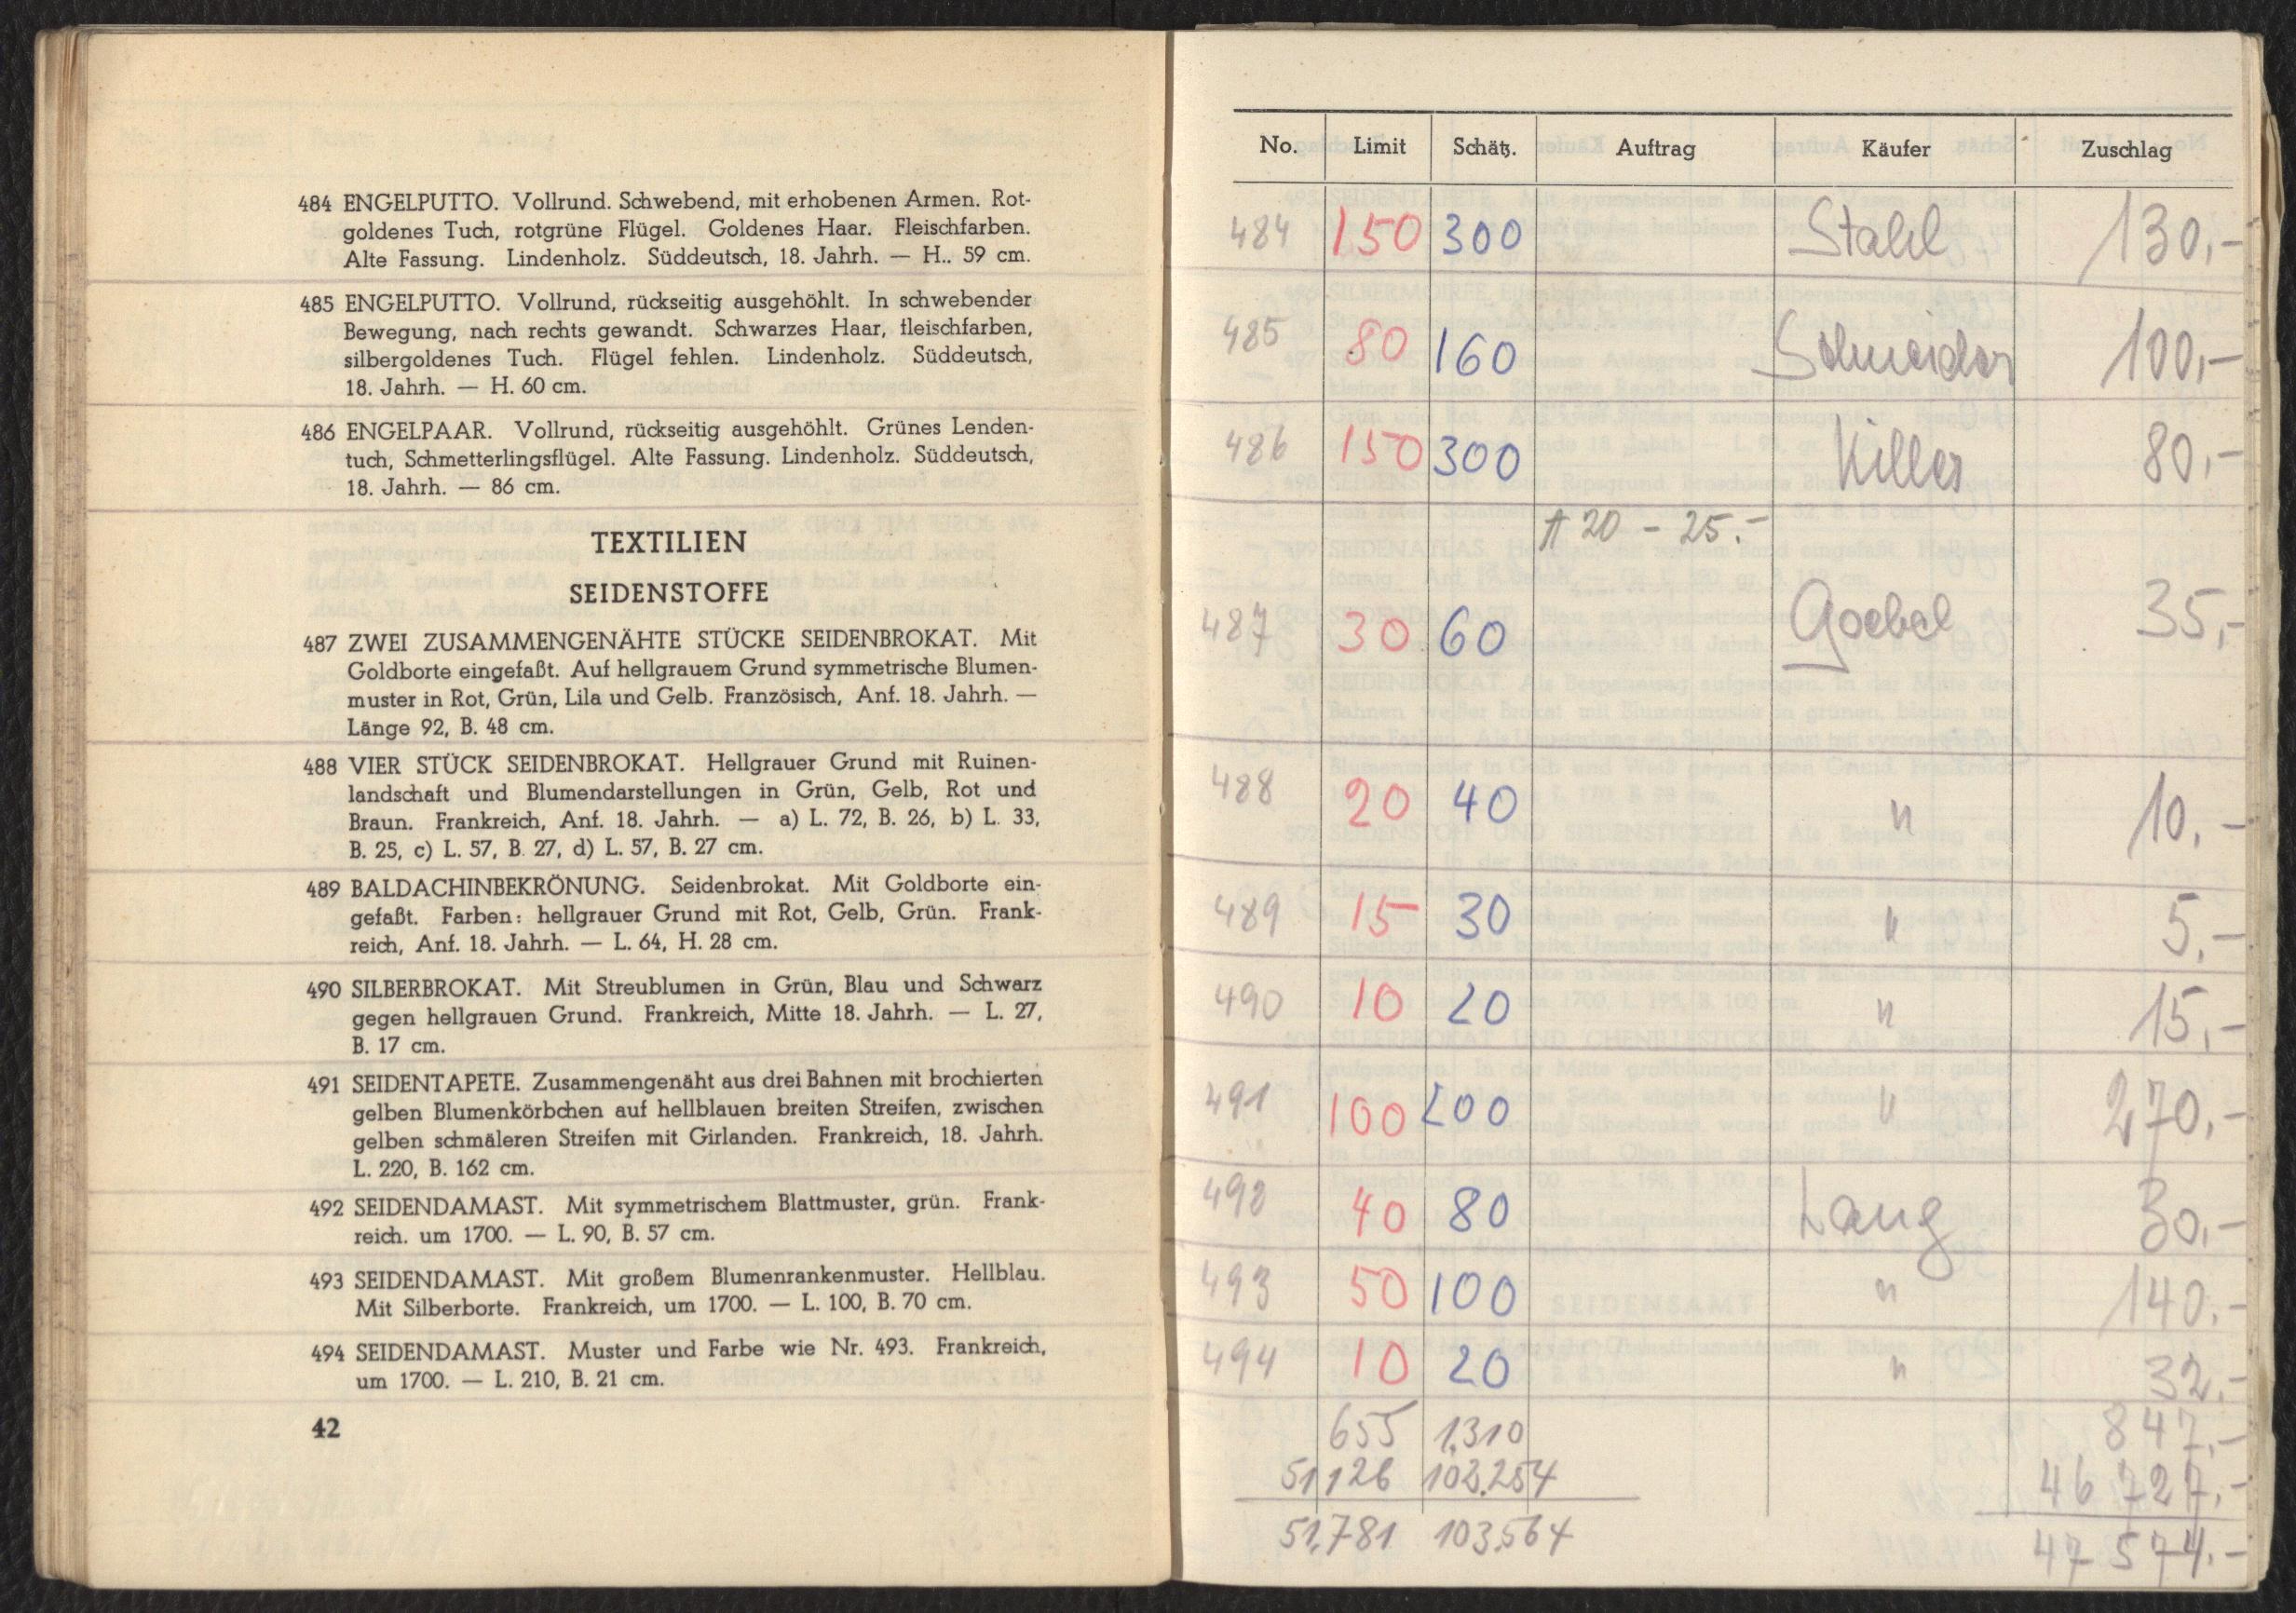 484 ENGELPUTTO. Vollrund. Schwebend, mit erhobenen Armen. Rot-
goldenes Tuch, rotgrüne Flügel. Goldenes Haar. Fleischfarben.
Alte Fassung. Lindenholz. Süddeutsch, 18. Jahrh. — H.. 59 cm.
485 ENGELPUTTO. Vollrund, rückseitig ausgehöhlt. In schwebender
Bewegung, nach rechts gewandt. Schwarzes Haar, fleischfarben,
silbergoldenes Tuch. Flügel fehlen. Lindenholz. Süddeutsch,
18. Jahrh. — H. 60 cm.
486 ENGELPAAR. Vollrund, rückseitig ausgehöhlt. Grünes Lenden-
tuch, Schmetterlingsflügel. Alte Fassung. Lindenholz. Süddeutsch,
18. Jahrh. — 86 cm.
TEXTILIEN
SEIDENSTOFFE
487 ZWEI ZUSAMMENGENÄHTE STÜCKE SEIDENBROKAT. Mit
Goldborte eingefaßt. Auf hellgrauem Grund symmetrische Blumen-
muster in Rot, Grün, Lila und Gelb. Französisch, Anf. 18. Jahrh. —
Länge 92, B. 48 cm.
488 VIER STÜCK SEIDENBROKAT. Hellgrauer Grund mit Ruinen-
landschaft und Blumendarstellungen in Grün, Gelb, Rot und
Braun. Frankreich, Anf. 18. Jahrh. — a) L. 72, B. 26, b) L. 33,
B. 25, c) L. 57, B. 27, d) L. 57, B. 27 cm.
489 BALDACHINBEKRÖNUNG. Seidenbrokat. Mit Goldborte ein-
gefaßt. Farben: hellgrauer Grund mit Rot, Gelb, Grün. Frank-
reich, Anf. 18. Jahrh. — L. 64, H. 28 cm.
490 SILBERBROKAT. Mit Streublumen in Grün, Blau und Schwarz
gegen hellgrauen Grund. Frankreich, Mitte 18. Jahrh. — L. 27,
B. 17 cm.
491 SEIDENTAPETE. Zusammengenäht aus drei Bahnen mit brochierten
gelben Blumenkörbchen auf hellblauen breiten Streifen, zwischen
gelben schmäleren Streifen mit Girlanden. Frankreich, 18. Jahrh.
L. 220, B. 162 cm.
492 SEIDENDAMAST. Mit symmetrischem Blattmuster, grün. Frank-
reich. um 1700. — L. 90, B. 57 cm.
493 SEIDENDAMAST. Mit großem Blumenrankenmuster. Hellblau.
Mit Silberborte. Frankreich, um 1700. — L. 100, B. 70 cm.
494 SEIDENDAMAST. Muster und Farbe wie Nr. 493. Frankreich,
um 1700. — L. 210, B. 21 cm.
42
No. Limit Schätz. Auftrag Käufer Zuschlag
484 150 300 Stahl 130,-
485 80 160 Schneider 100,-
486 150 300 Killer 80,-
20 - 25.-
487 30 60 Goebel 35,-
488 20 40 " 10.-
489 15 30 " 5.-
490 10 20 " 15,-
491 100 200 " 270,-
492 40 80 Lang 30,-
493 50 100 " 140.-
494 10 20 " 32.-
655 1.310 847,-
51,126 102.254 46 727,-
51.781 103.564 47 574.-